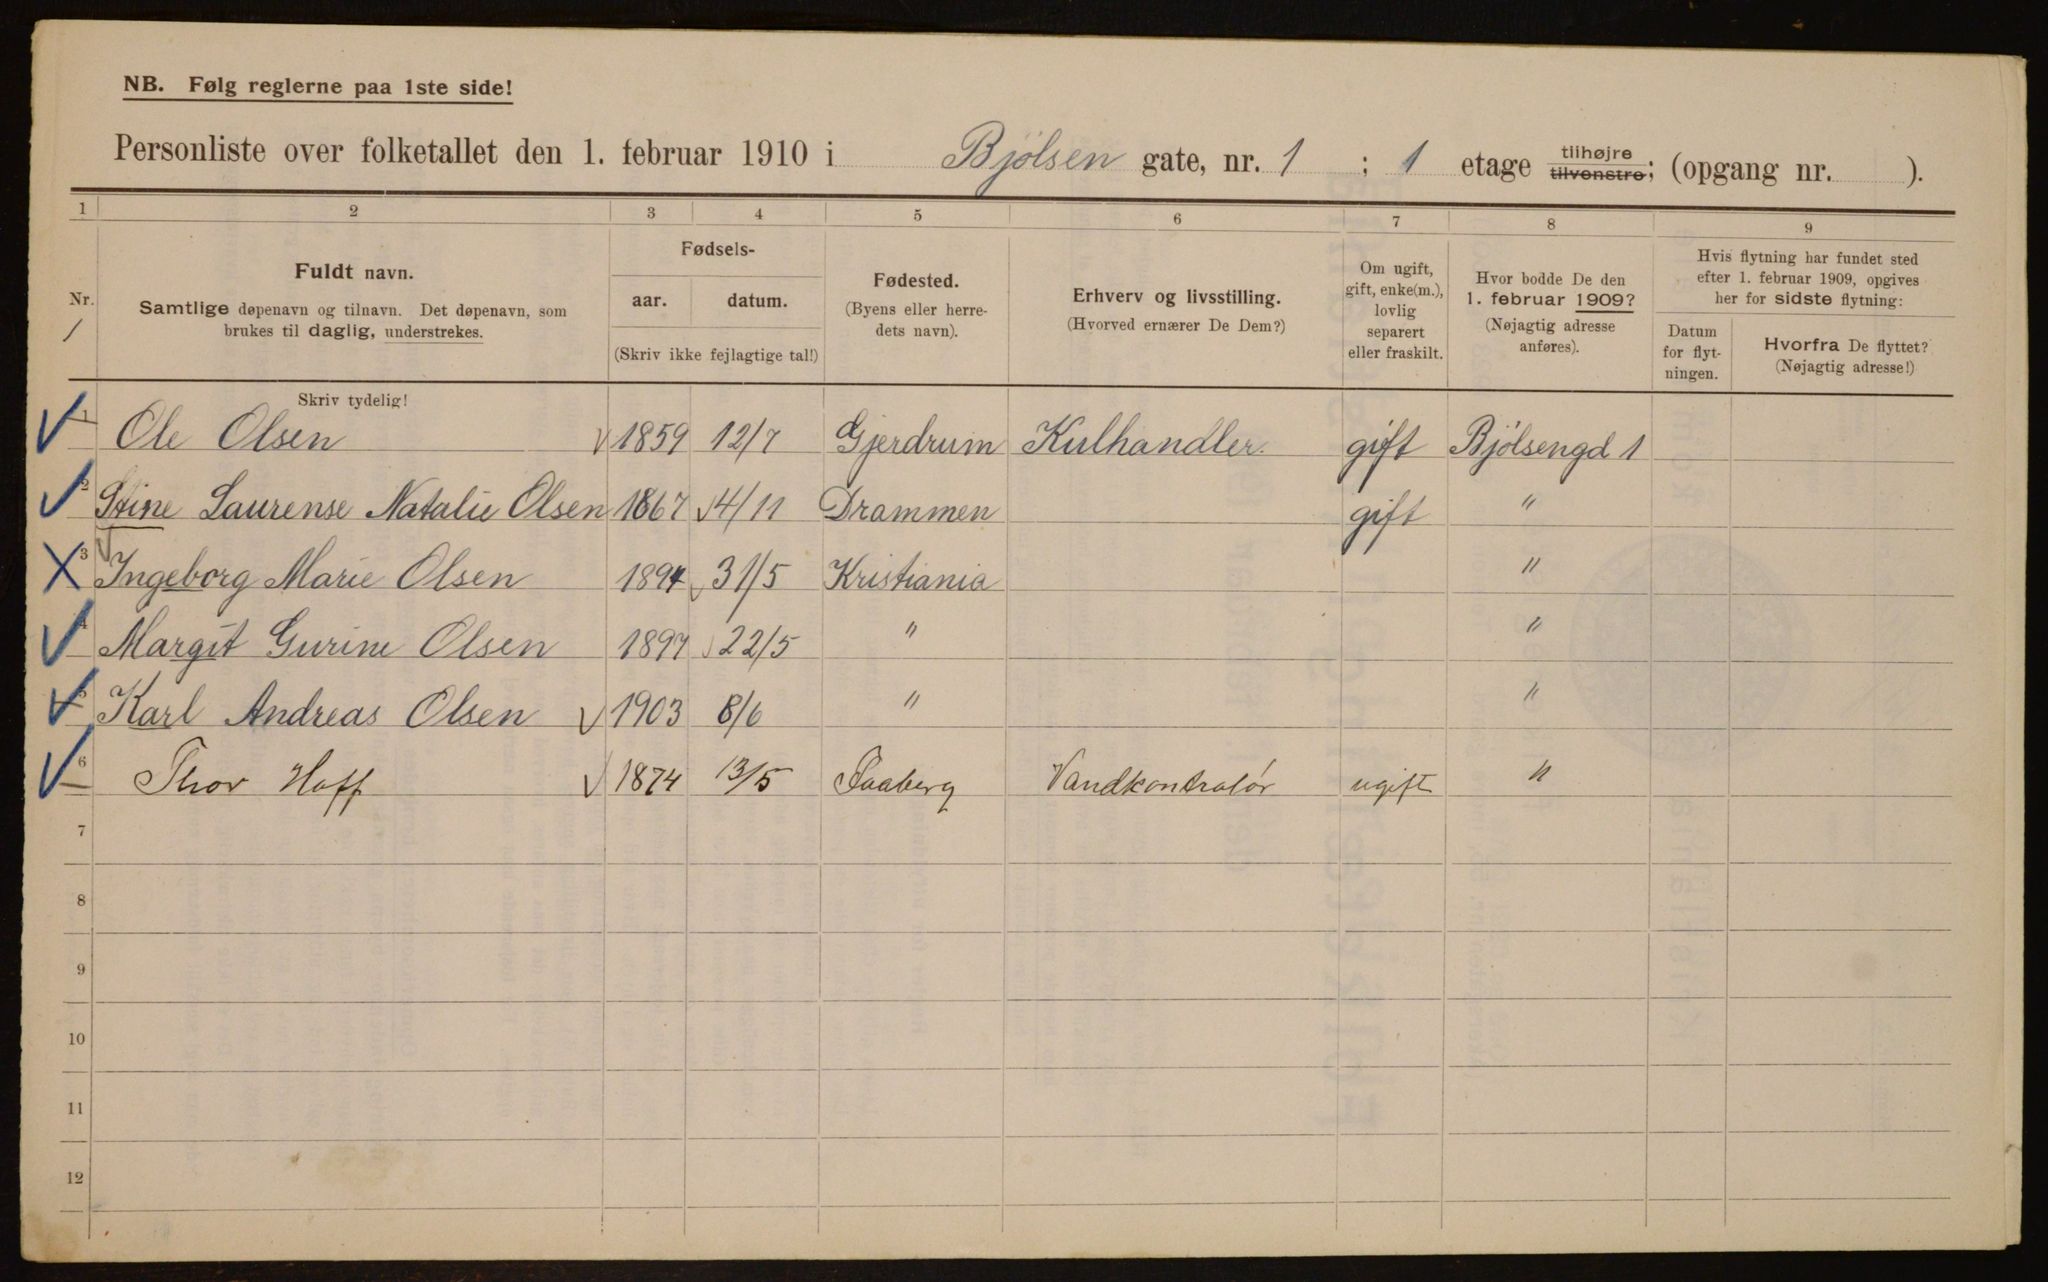 NB. Følg reglerne paa 1ste side!
Personliste over folketallet den 1. februar 1910 i Bjølsen gate, nr. 1 ; 1 etage tilhøjre tilvenstre; (opgang nr. ).
1 2 3 4 5 6 7 8 9
Nr.
1
Fuldt navn.
Samtlige døpenavn og tilnavn. Det døpenavn, som
brukes til daglig, understrekes.
Skriv tydelig!
Fødsels-
aar. datum.
(Skriv ikke fejlagtige tal!)
Fødested.
(Byens eller herre-
dets navn).
Erhverv og livsstilling.
(Hvorved ernærer De Dem?)
Om ugift,
gift, enke(m.),
lovlig
separert
eller fraskilt.
Hvor bodde De den
1. februar 1909?
(Nøjagtig adresse
anføres).
Hvis flytning har fundet sted
efter 1. februar 1909, opgives
her for sidste flytning:
Datum
for flyt-
ningen.
Hvorfra De flyttet?
(Nøjagtig adresse!)
1 Ole Olsen 1859 12/7 Gjerdrum Kulhandler. gift Bjølsengd 1
2 Stine Laurense Natalie Olsen 1867 4/11 Drammen gift "
3 Ingeborg Marie Olsen 1894 31/5 Kristiania "
4 Margit Gurine Olsen 1897 22/5 " "
5 Karl Andreas Olsen 1903 8/6 " "
6 Thor Hoff 1874 13/5 Faaberg Vandkontrolør ugift "
7
8
9
10
11
12